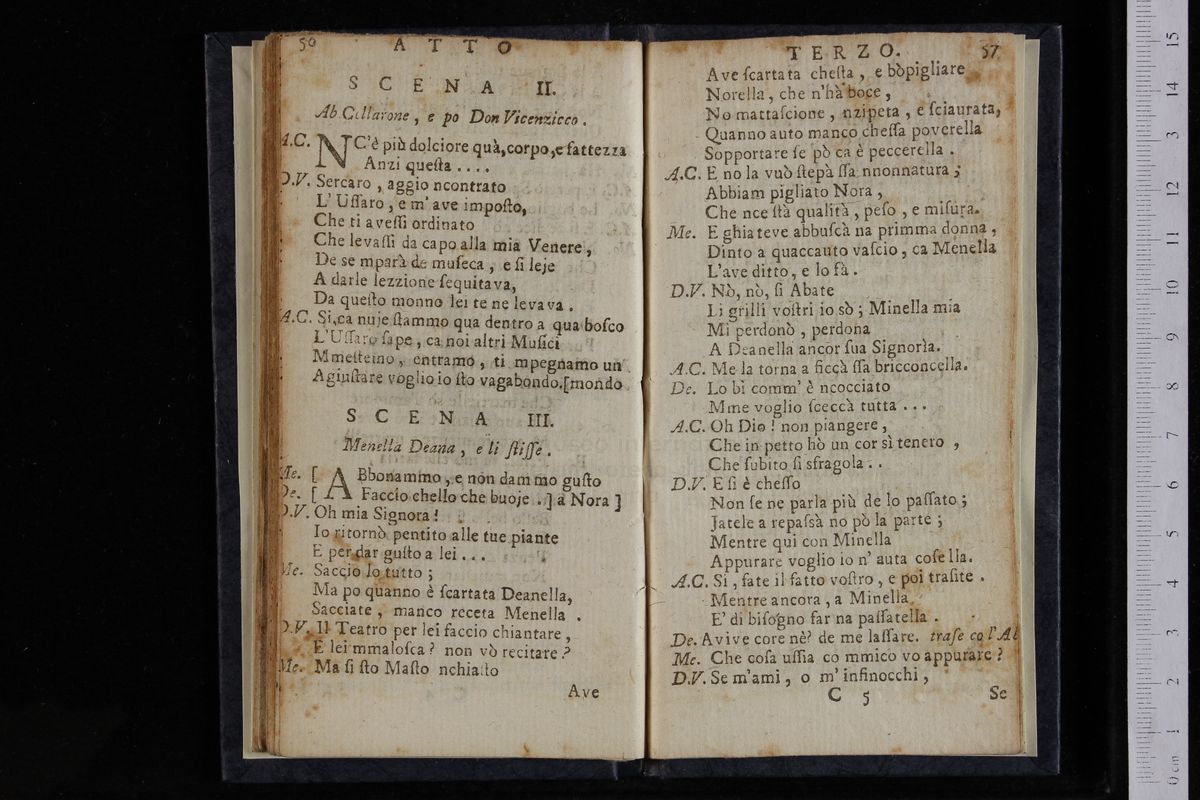 56 ATTO
SCENA II.
Ab. Collarone, e po Don Vicenzicco.
A.C. NC'è più dolciore quà, corpo, e fattezza
Anzi questa ....
D.V. Sercaro, aggio ncontrato
L' Ussaro, e m' ave imposto,
Che ti avessi ordinato
Che levassi da capo alla mia Venere,
De se mparà de museca, e si leje
A darle lezzione sequitava,
Da questo monno lei te ne levava.
A.C. Si, ca nuje stammo qua dentro a qua bosco
L'Ussaro sape, ca noi altri Musici
Mmesteino, entramo, ti mpegnamo un
Agiustare voglio io sto vagabondo. [mondo
SCENA III.
Menella Deana, e li stisse.
Me. [ ABbonammo, e non dammo gusto
De. [ Faccio chello che buoje ..] a Nora ]
D.V. Oh mia Signora!
Io ritornò pentito alle tue piante
E per dar gusto a lei ...
Me. Saccio lo tutto;
Ma po quanno è scartata Deanella,
Sacciate, manco receta Menella.
D.V. Il Teatro per lei faccio chiantare,
E lei mmalosca? non vò recitare?
Me. Ma si sto Masto nchiatto
Ave
TERZO. 57
Ave scartata chesta, e bò pigliare
Norella, che n'hà boce,
No mattascione, nzipeta, e sciaurata,
Quanno auto manco chessa poverella
Sopportare se pò ca è peccerella.
A.C. E no la vuò stepà ssa nnonnatura;
Abbiam pigliato Nora,
Che nce stà qualità, peso, e misura.
Me. E ghiateve abbuscà na primma donna,
Dinto a quaccauto vascio, ca Menella
L'ave ditto, e lo fà.
D.V. Nò, nò, si Abate
Li grilli vostri io sò; Minella mia
Mi perdonò, perdona
A Deanella ancor sua Signorìa.
A.C. Me la torna a ficcà ssa bricconcella.
De. Lo bi comm' è ncocciato
Mme voglio sceccà tutta ...
A.C. Oh Dio! non piangere,
Che in petto hò un cor sì tenero,
Che subito si sfragola ..
D.V. E si è chesso
Non se ne parla più de lo passato;
Jatele a repassà no pò la parte;
Mentre qui con Minella
Appurare voglio io n' auta cosella.
A.C. Si, fate il fatto vostro, e poi trasite.
Mentre ancora, a Minella
E' di bisogno far na passatella.
De. Avive core nè? de me lassare. trase co l'Ab
Me. Che cosa ussia co mmico vo appurare?
D.V. Se m'ami, o m' infinocchi,
C 5 Se
0 cm 1 2 3 4 5 6 7 8 9 10 11 12 13 14 15